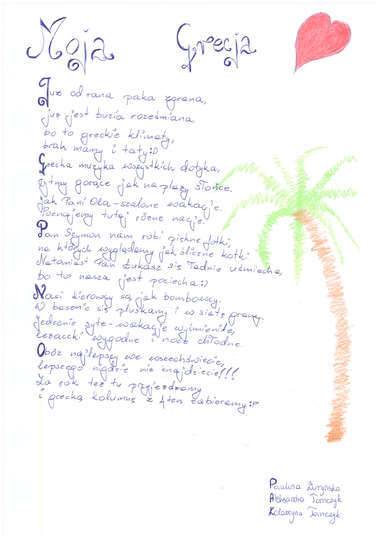 Moja Grecja
Już od rana paka zgrana,
już jest buzia roześmiana
bo to greckie klimaty,
brak mamy i taty:D
Grecka muzyka wszystkich dotyka,
rytmy gorące jak na plaży słońce.
jak Pani Ola - szalone wakacje.
Poznajemy tutaj różne nacje.
Pan Szymon nam robi piękne fotki,
na których wyglądamy jak śliczne kotki
Natomiast Pan Łukasz się ładnie uśmiecha,
bo to nasza jest pociecha:)
Nasi kierowcy są jak bombowcy,
W basenie się pluskamy i w siatę gramy.
Jedzenie syte - wakacje wyśmienite,
leżaczki wygodne i noce chłodne.
Obóz najlepszy we wszechświecie,
lepszego nigdzie nie znajdziecie!!!
Za rok też tu przyjeżdżamy
i grecką kolumnę z Aten zabieramy:P
Paulina
Aleksandra Tomczyk
Katarzyna Tomczyk